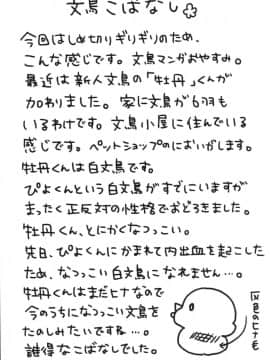 文鳥こばなし
今回はしめ切りギリギリのため、
こんな感じです。文鳥マンガおやすみ。
最近は新人文鳥の「牡丹」くんが
加わりました。家に文鳥が6羽も
いるわけです。文鳥小屋に住んでいる
感じです。ペットショップのにおいがします。
牡丹くんは白文鳥です。
ぴよくんという白文鳥がすでにいますが
まったく正反対の性格でおどろきました。
牡丹くん、とにかくなつっこい。
先日、ぴよくんにかまれて内出血を起こした
ため、なつっこい白文鳥になれません…。
牡丹くんはまだヒナなので
今のうちになつっこい文鳥を
たのしみたいですね…。
誰得なこばなしでした。